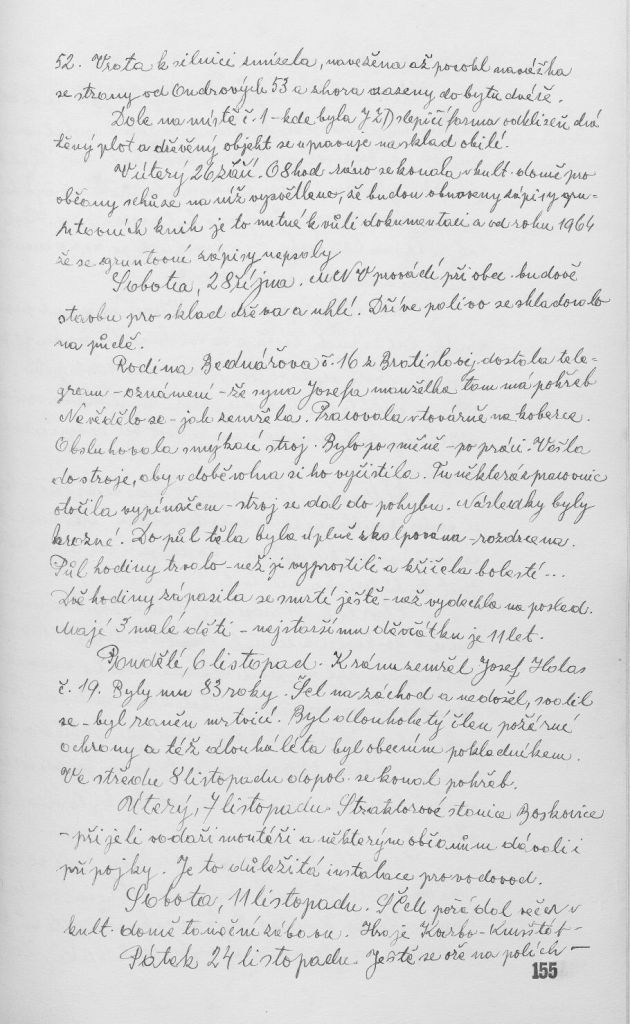 52. Vrata k silnici zmizela, navežena až povokl navážka
se strany od Ondrových 53 a shora vsazeny do bytu dvéře.
Dole na místě č. 1 - kde byla JZD slepičí farma odklizen drá
těný plot a dřevěný objekt se upravuje na sklad obilí.
V úterý 26 září. O 8 hod. ráno se konala v kult. domě pro
občany schůze na níž vysvětleno, že budou obnoveny zápisy gru-
ntovních knih je to nutné k vůli dokumentaci a od roku 1964
že se gruntovní zápisy nepsaly
Sobota, 28 října. MNV provádí při obec. budově
stavbu pro sklad dřeva a uhlí. Dříve palivo se skladovalo
na půdě.
Rodina Bednářova č. 16 z Bratislavy dostala tele-
gram - oznámení - že syna Josefa manželka tam má pohřeb
Nevědělo se - jak zemřela. Pracovala v továrně na koberce.
Obsluhovala smýkací stroj. Bylo po směně - po práci. Vešla
do stroje, aby v době volna si ho vyčistila. Tu některá z pracovnic
otočila vypínačem - stroj se dal do pohybu. Následky byly
hrozné. Do půl těla byla úplně skalpována - rozdrcena.
Půl hodiny trvalo - než ji vyprostili a křičela bolestí - . . .
Dvě hodiny zápasila se smrtí ještě - než vydechla na posled.
Mají 3 malé děti - nejstaršímu děvčátku je 11 let.
Pondělí, 6 listopad. K ránu zemřel Josef Halas
č. 19. Byly mu 83 roky. Šel na záchod a nedošel, svalil
se - byl raněn mrtvicí. Byl dlouholetý člen požárné
ochrany a též dlouhá léta byl obecním pokladníkem.
Ve středu 8 listopadu dopol. se konal pohřeb.
Úterý, 7 listopadu. S traktorové stanice Boskovice
- přijeli vodaři montéři a některým občanům dávali i
přípojky. Je to důležitá instalace pro vodovod.
Sobota, 11 listopadu. SČM pořádal večer v
kult. domě taneční zábavu. Hraje - Kunštát -
Pátek 24 listopadu. Ještě se oře na polích -
155